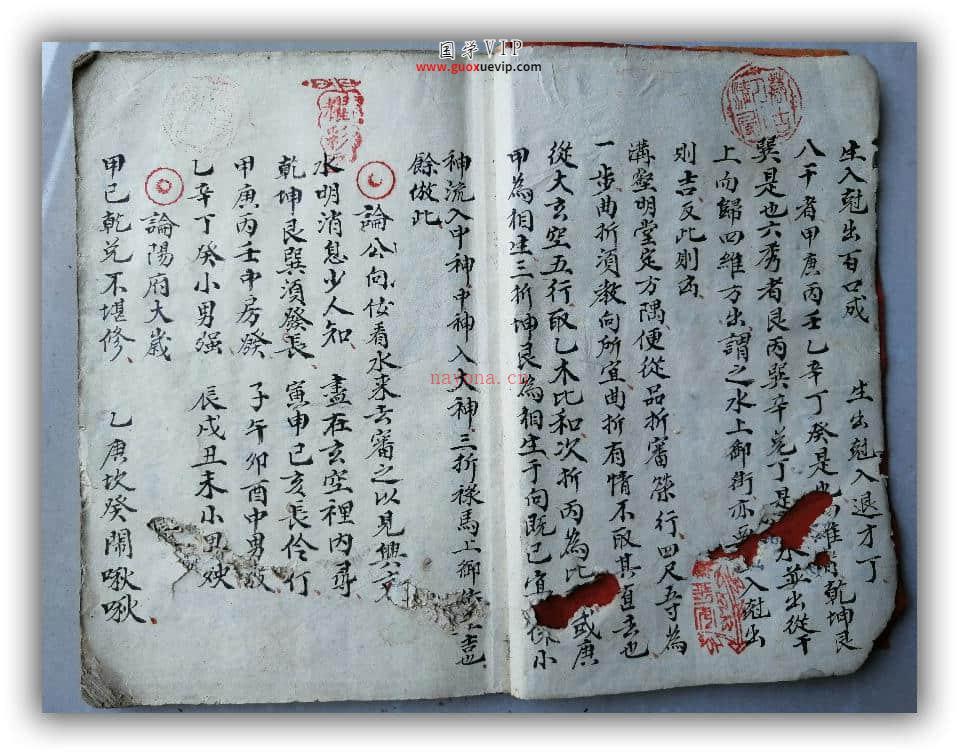 国学VIP
www.guoxuevip.com
nayona.cn
生入尅出百口成 生出尅入退才丁
八干者甲庚丙壬乙辛丁癸是也 維者乾坤艮
巽是也六秀者艮丙巽辛兑丁是 水並出從干
上向歸四維方出謂之水上御街亦要 入尅出
則吉反此則凶
溝壑明堂定方隅便從品折審筞行四尺五寸為
一步曲折須教向所宜曲折有情不取其直去也
從大玄空五行取乙木比和次折丙為比 或庚
甲為相生三折坤艮為相生于向既已宜 小
神流入中神中神入大神三折禄馬上御 吉也
餘倣此
論公向伩看水來去審之以見興
水明消息少人知 盡在玄空裡内尋
乾坤艮巽須發長 寅申巳亥長伶仃
甲庚丙壬中房發 子午卯酉中男
乙辛丁癸小男强 辰戌丑未小男
論陽府大歲
甲巳乾兑不堪修 乙庚坎癸鬧啾啾
耀彩